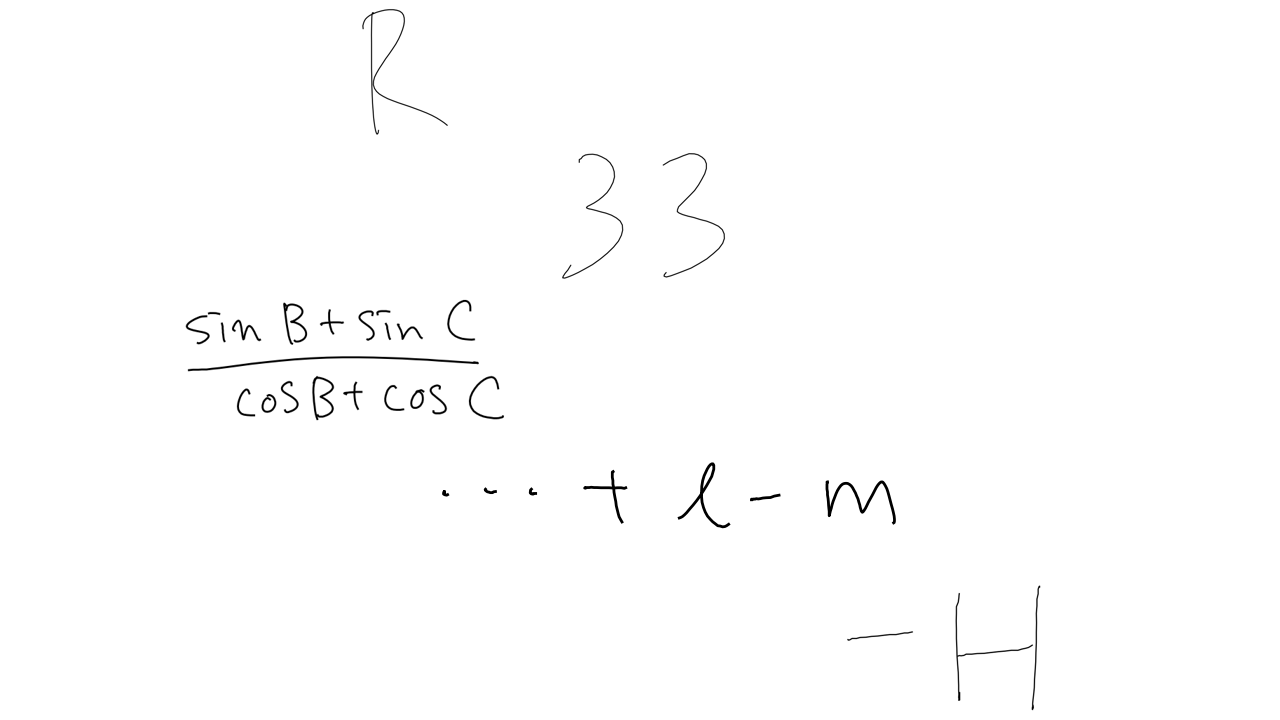 R
33
\frac{\sin B + \sin C}{\cos B + \cos C}
\cdots + l - m
- H